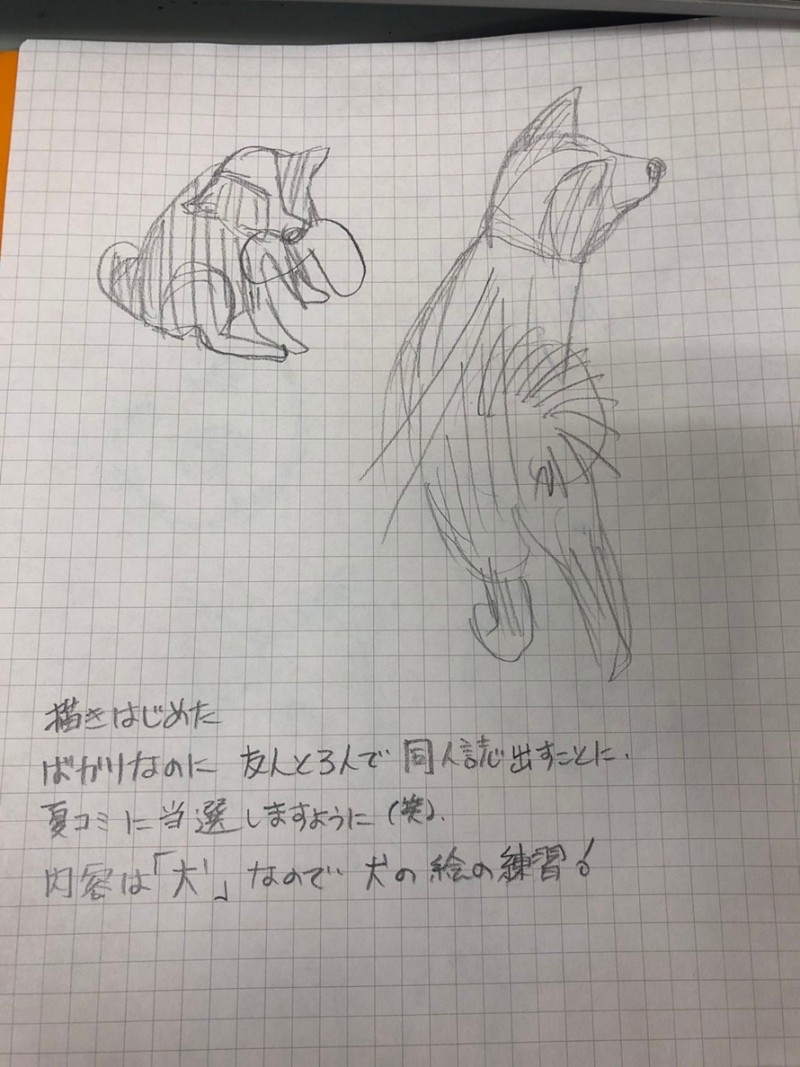 描きはじめた
ばかりなのに 友人と3人で 同人誌出すことに.
夏コミに当選しますように(笑).
内容は「犬」なので 犬の絵の練習!